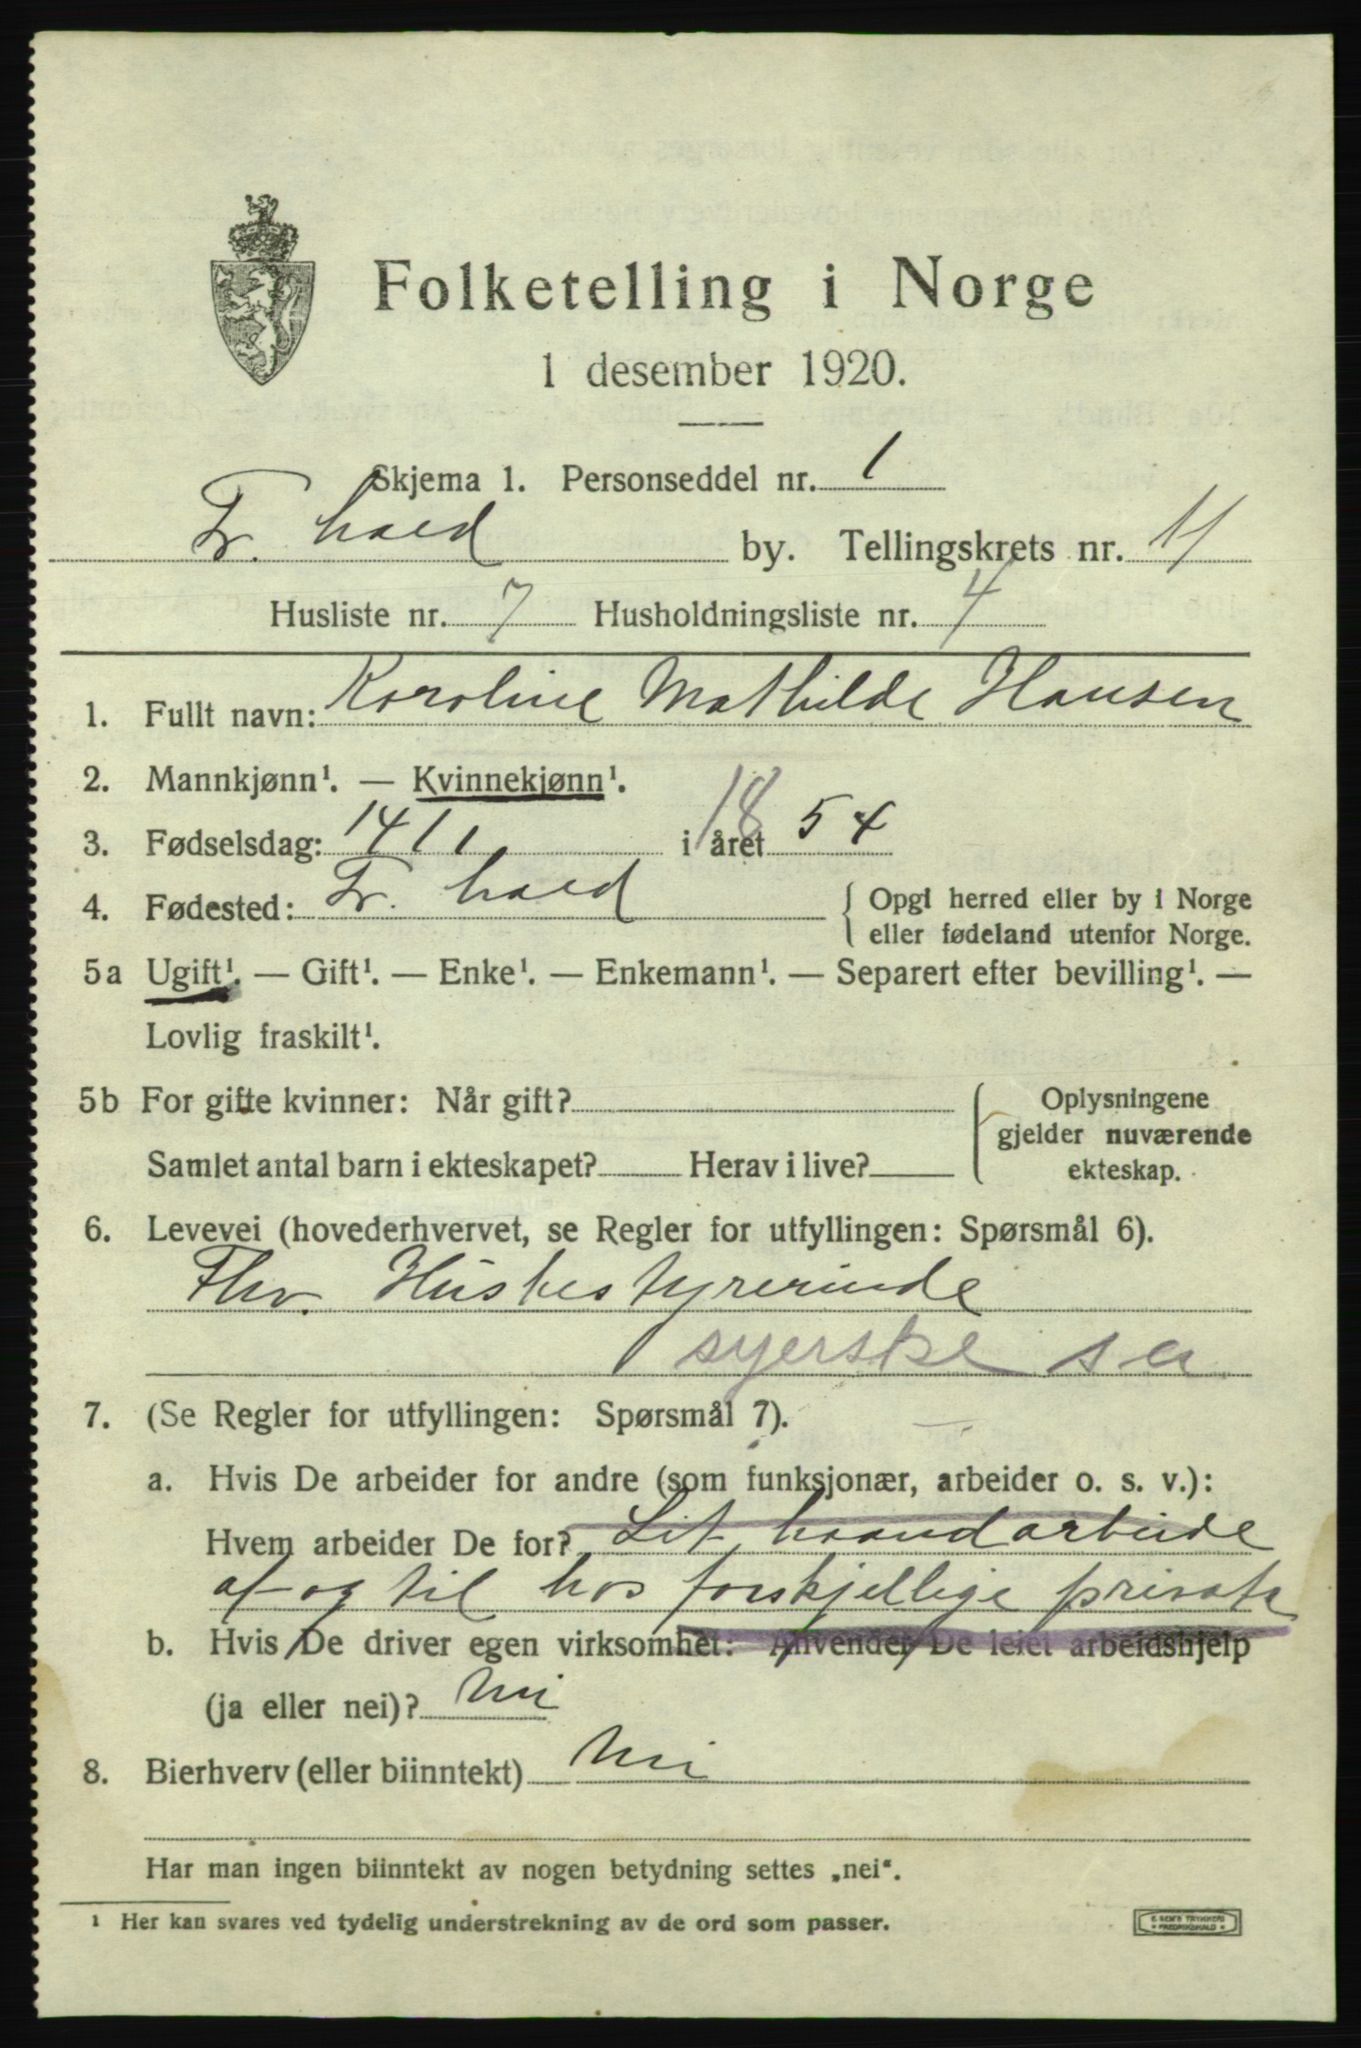 Folketelling i Norge
1 desember 1920.
Skjema 1. Personseddel nr. 1
Fr. hald by. Tellingskrets nr. 11
Husliste nr. 7 Husholdningsliste nr. 4
1. Fullt navn: Karoline Mathilde Hansen
2. Mannkjønn¹. — Kvinnekjønn¹.
3. Fødselsdag: 14 11 i året 1854
4. Fødested: Fr. hald { Opgi herred eller by i Norge
eller fødeland utenfor Norge.
5a Ugift¹. — Gift¹. — Enke¹. — Enkemann¹. — Separert efter bevilling¹. —
Lovlig fraskilt¹.
5b For gifte kvinner: Når gift? { Oplysningene
gjelder nuværende
Samlet antal barn i ekteskapet? Herav i live? ekteskap.
6. Levevei (hovederhvervet, se Regler for utfyllingen: Spørsmål 6).
Fhv. Husbestyrerinde
syerske s a
7. (Se Regler for utfyllingen: Spørsmål 7).
a. Hvis De arbeider for andre (som funksjonær, arbeider o. s. v.):
Hvem arbeider De for? Lit haandarbeide
af og til hos forskjellige private
b. Hvis De driver egen virksomhet: Anvender De leiet arbeidshjelp
(ja eller nei)? Nei
8. Bierhverv (eller biinntekt) Nei
Har man ingen biinntekt av nogen betydning settes „nei“.
¹ Her kan svares ved tydelig understrekning av de ord som passer.
FREDRIKSHALD